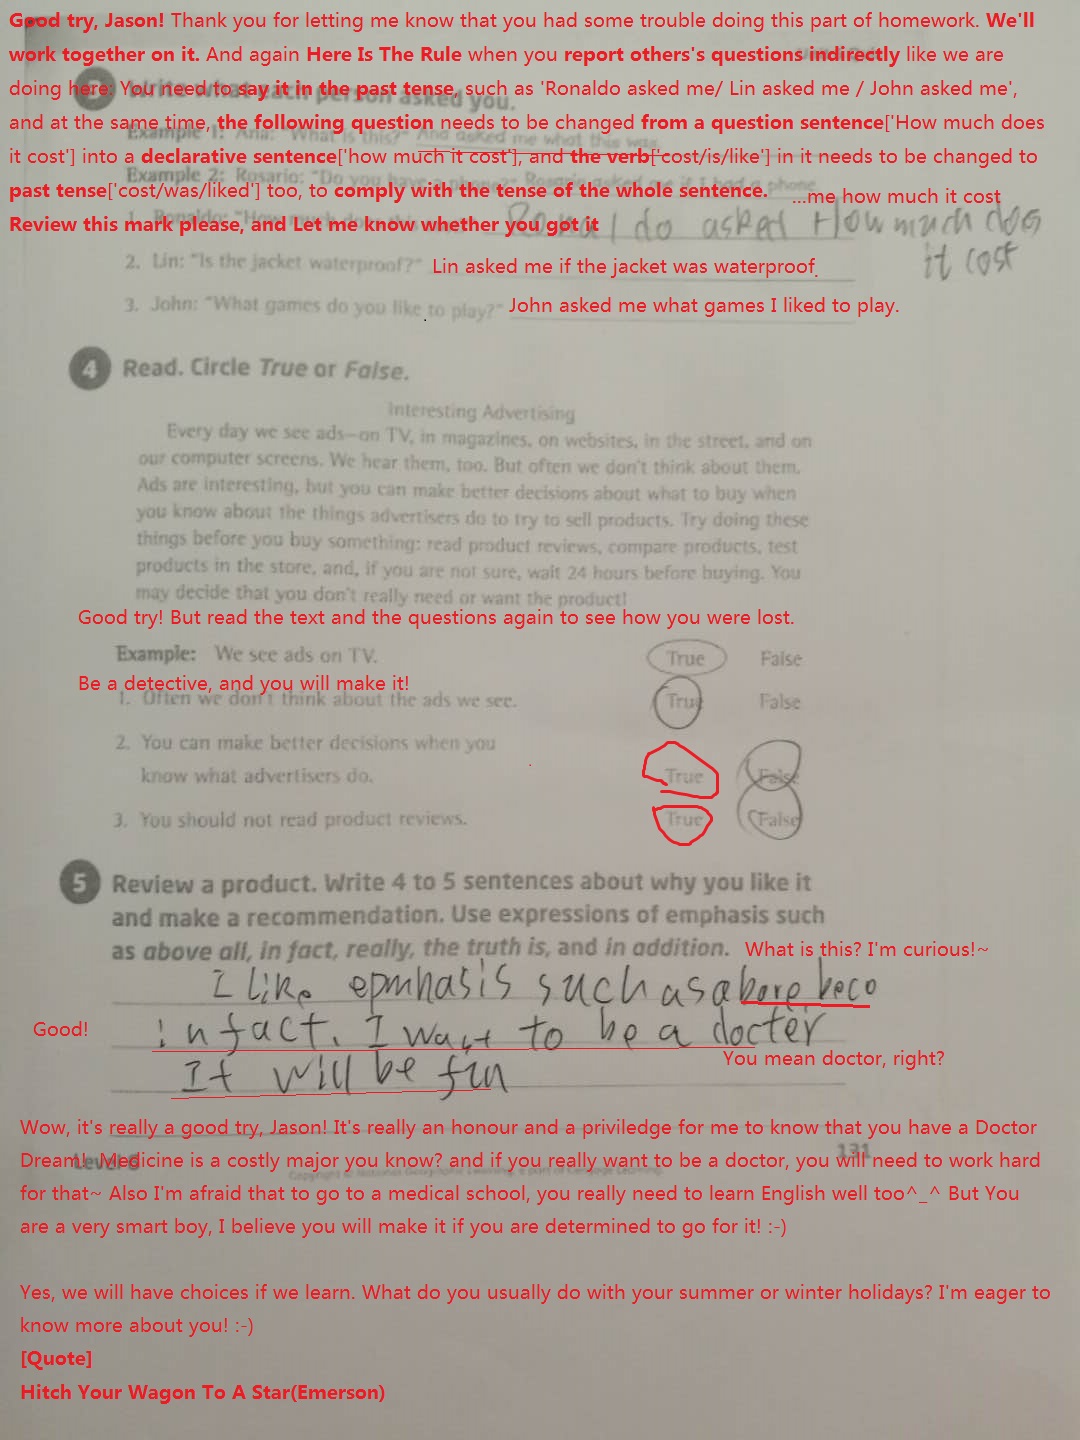 Good try, Jason! Thank you for letting me know that you had some trouble doing this part of homework. We'll
work together on it. And again Here Is The Rule when you report others's questions indirectly like we are
doing here: You need to say it in the past tense, such as 'Ronaldo asked me/ Lin asked me / John asked me',
3 Write what each person asked you.
and at the same time, the following question needs to be changed from a question sentence['How much does
Example 1: Ana: "What is this?" Ana asked me what this was.
it cost'] into a declarative sentence['how much it cost'], and the verb['cost/is/like'] in it needs to be changed to
Example 2: Rosario: "Do you have a phone?" Rosario asked me if I had a phone.
past tense['cost/was/liked'] too, to comply with the tense of the whole sentence.
...me how much it cost
1. Ronaldo: "How much does this cost?" Ronal do asked How much does
it cost
Review this mark please, and Let me know whether you got it
2. Lin: "Is the jacket waterproof?" Lin asked me if the jacket was waterproof.
3. John: "What games do you like to play?" John asked me what games I liked to play.
4 Read. Circle True or False.
Interesting Advertising
Every day we see ads—on TV, in magazines, on websites, in the street, and on
our computer screens. We hear them, too. But often we don't think about them.
Ads are interesting, but you can make better decisions about what to buy when
you know about the things advertisers do to try to sell products. Try doing these
things before you buy something: read product reviews, compare products, test
products in the store, and, if you are not sure, wait 24 hours before buying. You
may decide that you don't really need or want the product!
Good try! But read the text and the questions again to see how you were lost.
Example: We see ads on TV. True False
Be a detective, and you will make it!
1. Often we don't think about the ads we see. True False
2. You can make better decisions when you
know what advertisers do. True False
3. You should not read product reviews. True False
5 Review a product. Write 4 to 5 sentences about why you like it
and make a recommendation. Use expressions of emphasis such
as above all, in fact, really, the truth is, and in addition. What is this? I'm curious!~
I like epmhasis such as abore, beco
Good!
in fact. I want to be a docter
You mean doctor, right?
It will be fin
Wow, it's really a good try, Jason! It's really an honour and a priviledge for me to know that you have a Doctor
Dream! Medicine is a costly major you know? and if you really want to be a doctor, you will need to work hard
Level 6 131
Copyright © National Geographic Learning, a part of Cengage Learning
for that~ Also I'm afraid that to go to a medical school, you really need to learn English well too^_^ But You
are a very smart boy, I believe you will make it if you are determined to go for it! :-)
Yes, we will have choices if we learn. What do you usually do with your summer or winter holidays? I'm eager to
know more about you! :-)
[Quote]
Hitch Your Wagon To A Star(Emerson)